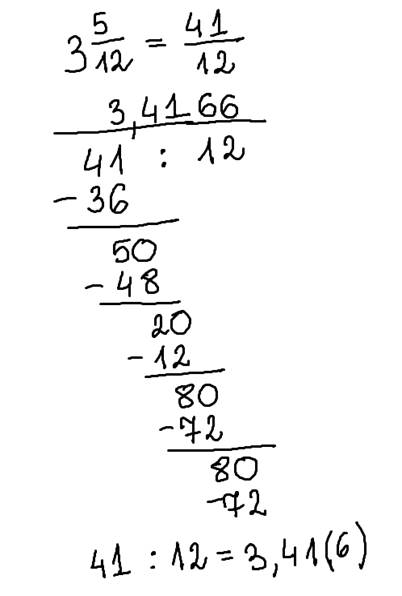 3 5/12 = 41/12
3,4166
41 : 12
- 36
50
- 48
20
- 12
80
- 72
80
- 72
41 : 12 = 3,41(6)